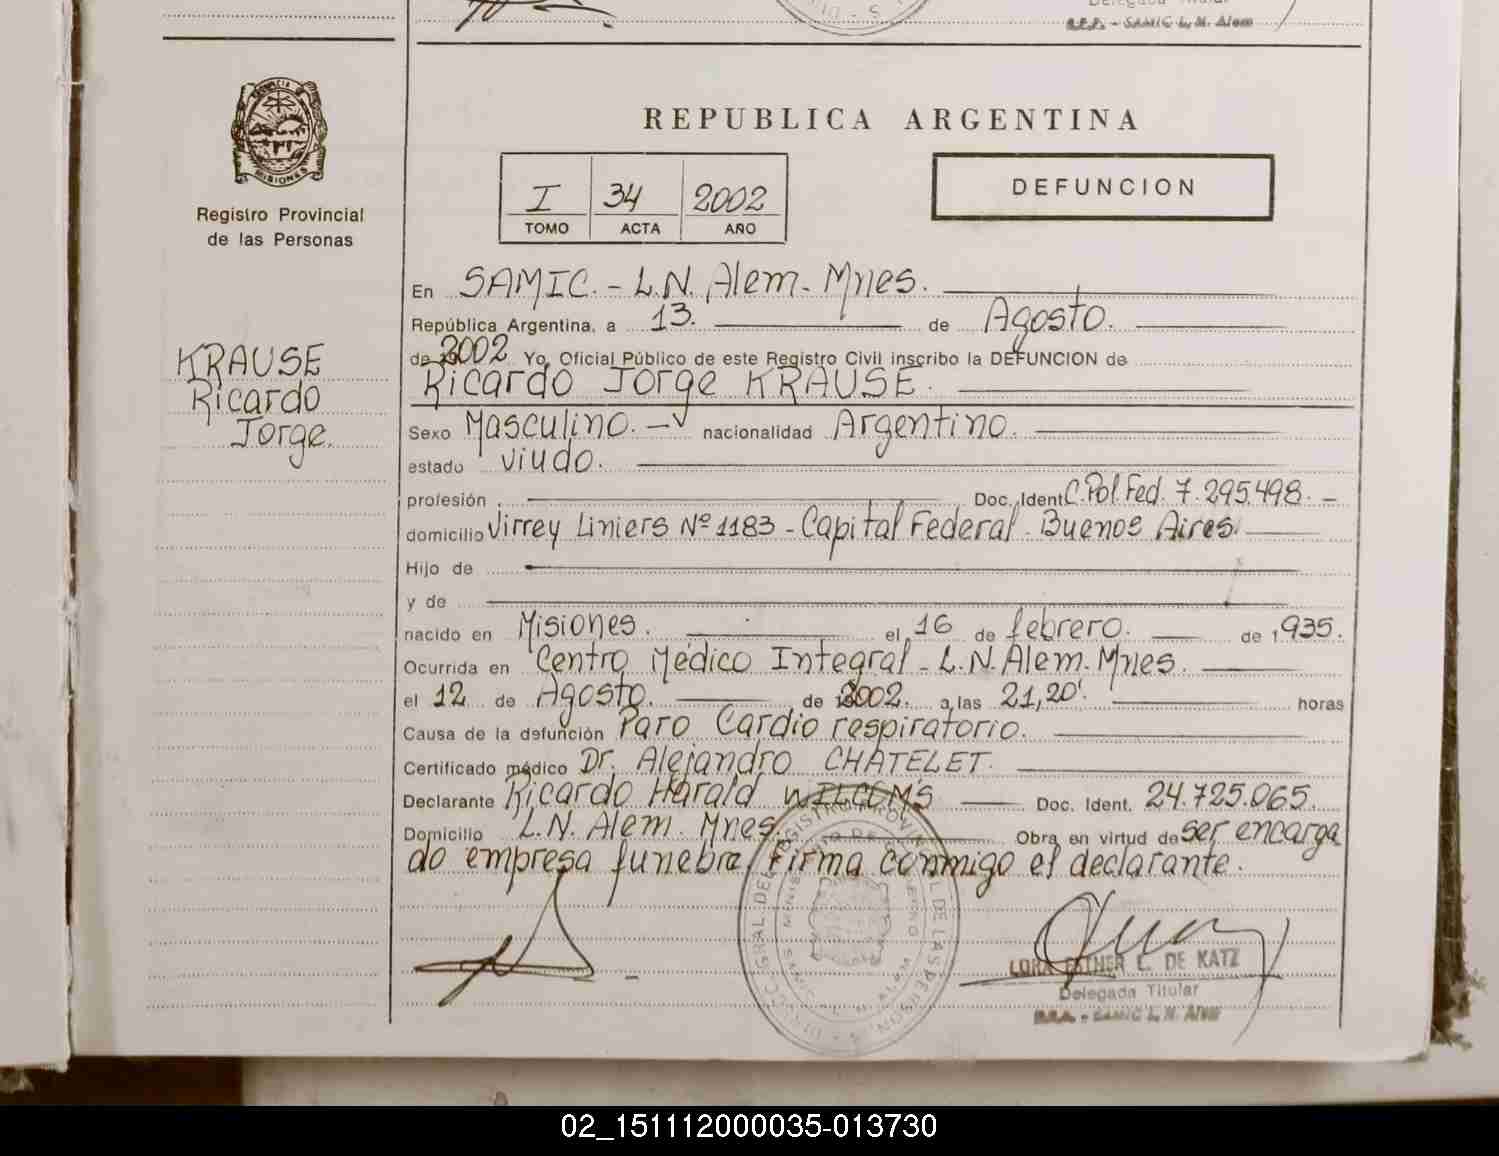 Delegada Titular
SAMIC L. N. Alem
PROVINCIA DE
MISIONES
Registro Provincial
de las Personas
KRAUSE
Ricardo
Jorge.
REPUBLICA ARGENTINA
I 34 2002
TOMO ACTA AÑO
DEFUNCION
En SAMIC. - L.N. Alem. Mnes.
República Argentina, a 13. de Agosto.
de 2002 Yo, Oficial Público de este Registro Civil inscribo la DEFUNCION de
Ricardo Jorge KRAUSE.
Sexo Masculino. - nacionalidad Argentino.
estado viudo.
profesión Doc. Ident C. Pol. Fed. 7.295.498. -
domicilio Virrey Liniers Nº 1183 - Capital Federal - Buenos Aires.
Hijo de
y de
nacido en Misiones. el 16 de febrero. de 1935.
Ocurrida en Centro Médico Integral - L.N. Alem. Mnes.
el 12 de Agosto. de 2002. a las 21,20'. horas
Causa de la defunción Paro Cardio respiratorio.
Certificado médico Dr. Alejandro CHATELET.
Declarante Ricardo Harald Doc. Ident. 24.725.065.
Domicilio L.N. Alem. Mnes. Obra en virtud de ser encarga
do empresa funebre. Firma conmigo el declarante.
LORA ESTHER E. DE KATZ
Delegada Titular
SAMIC L. N. Alem
02_151112000035-013730